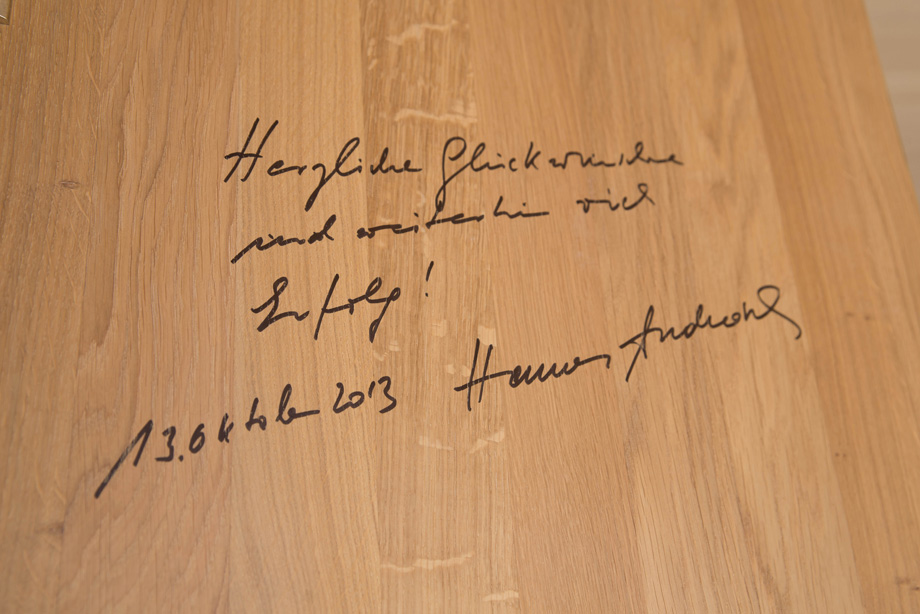 Herzliche Glückwünsche
und weiterhin viel
Erfolg!
13. Oktober 2013 Hannes Androsch